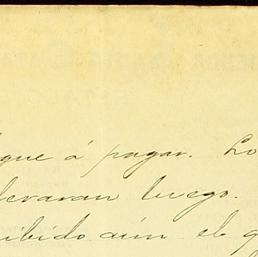 que á pagar. Lo
llevaran luego.
cibido aún el q